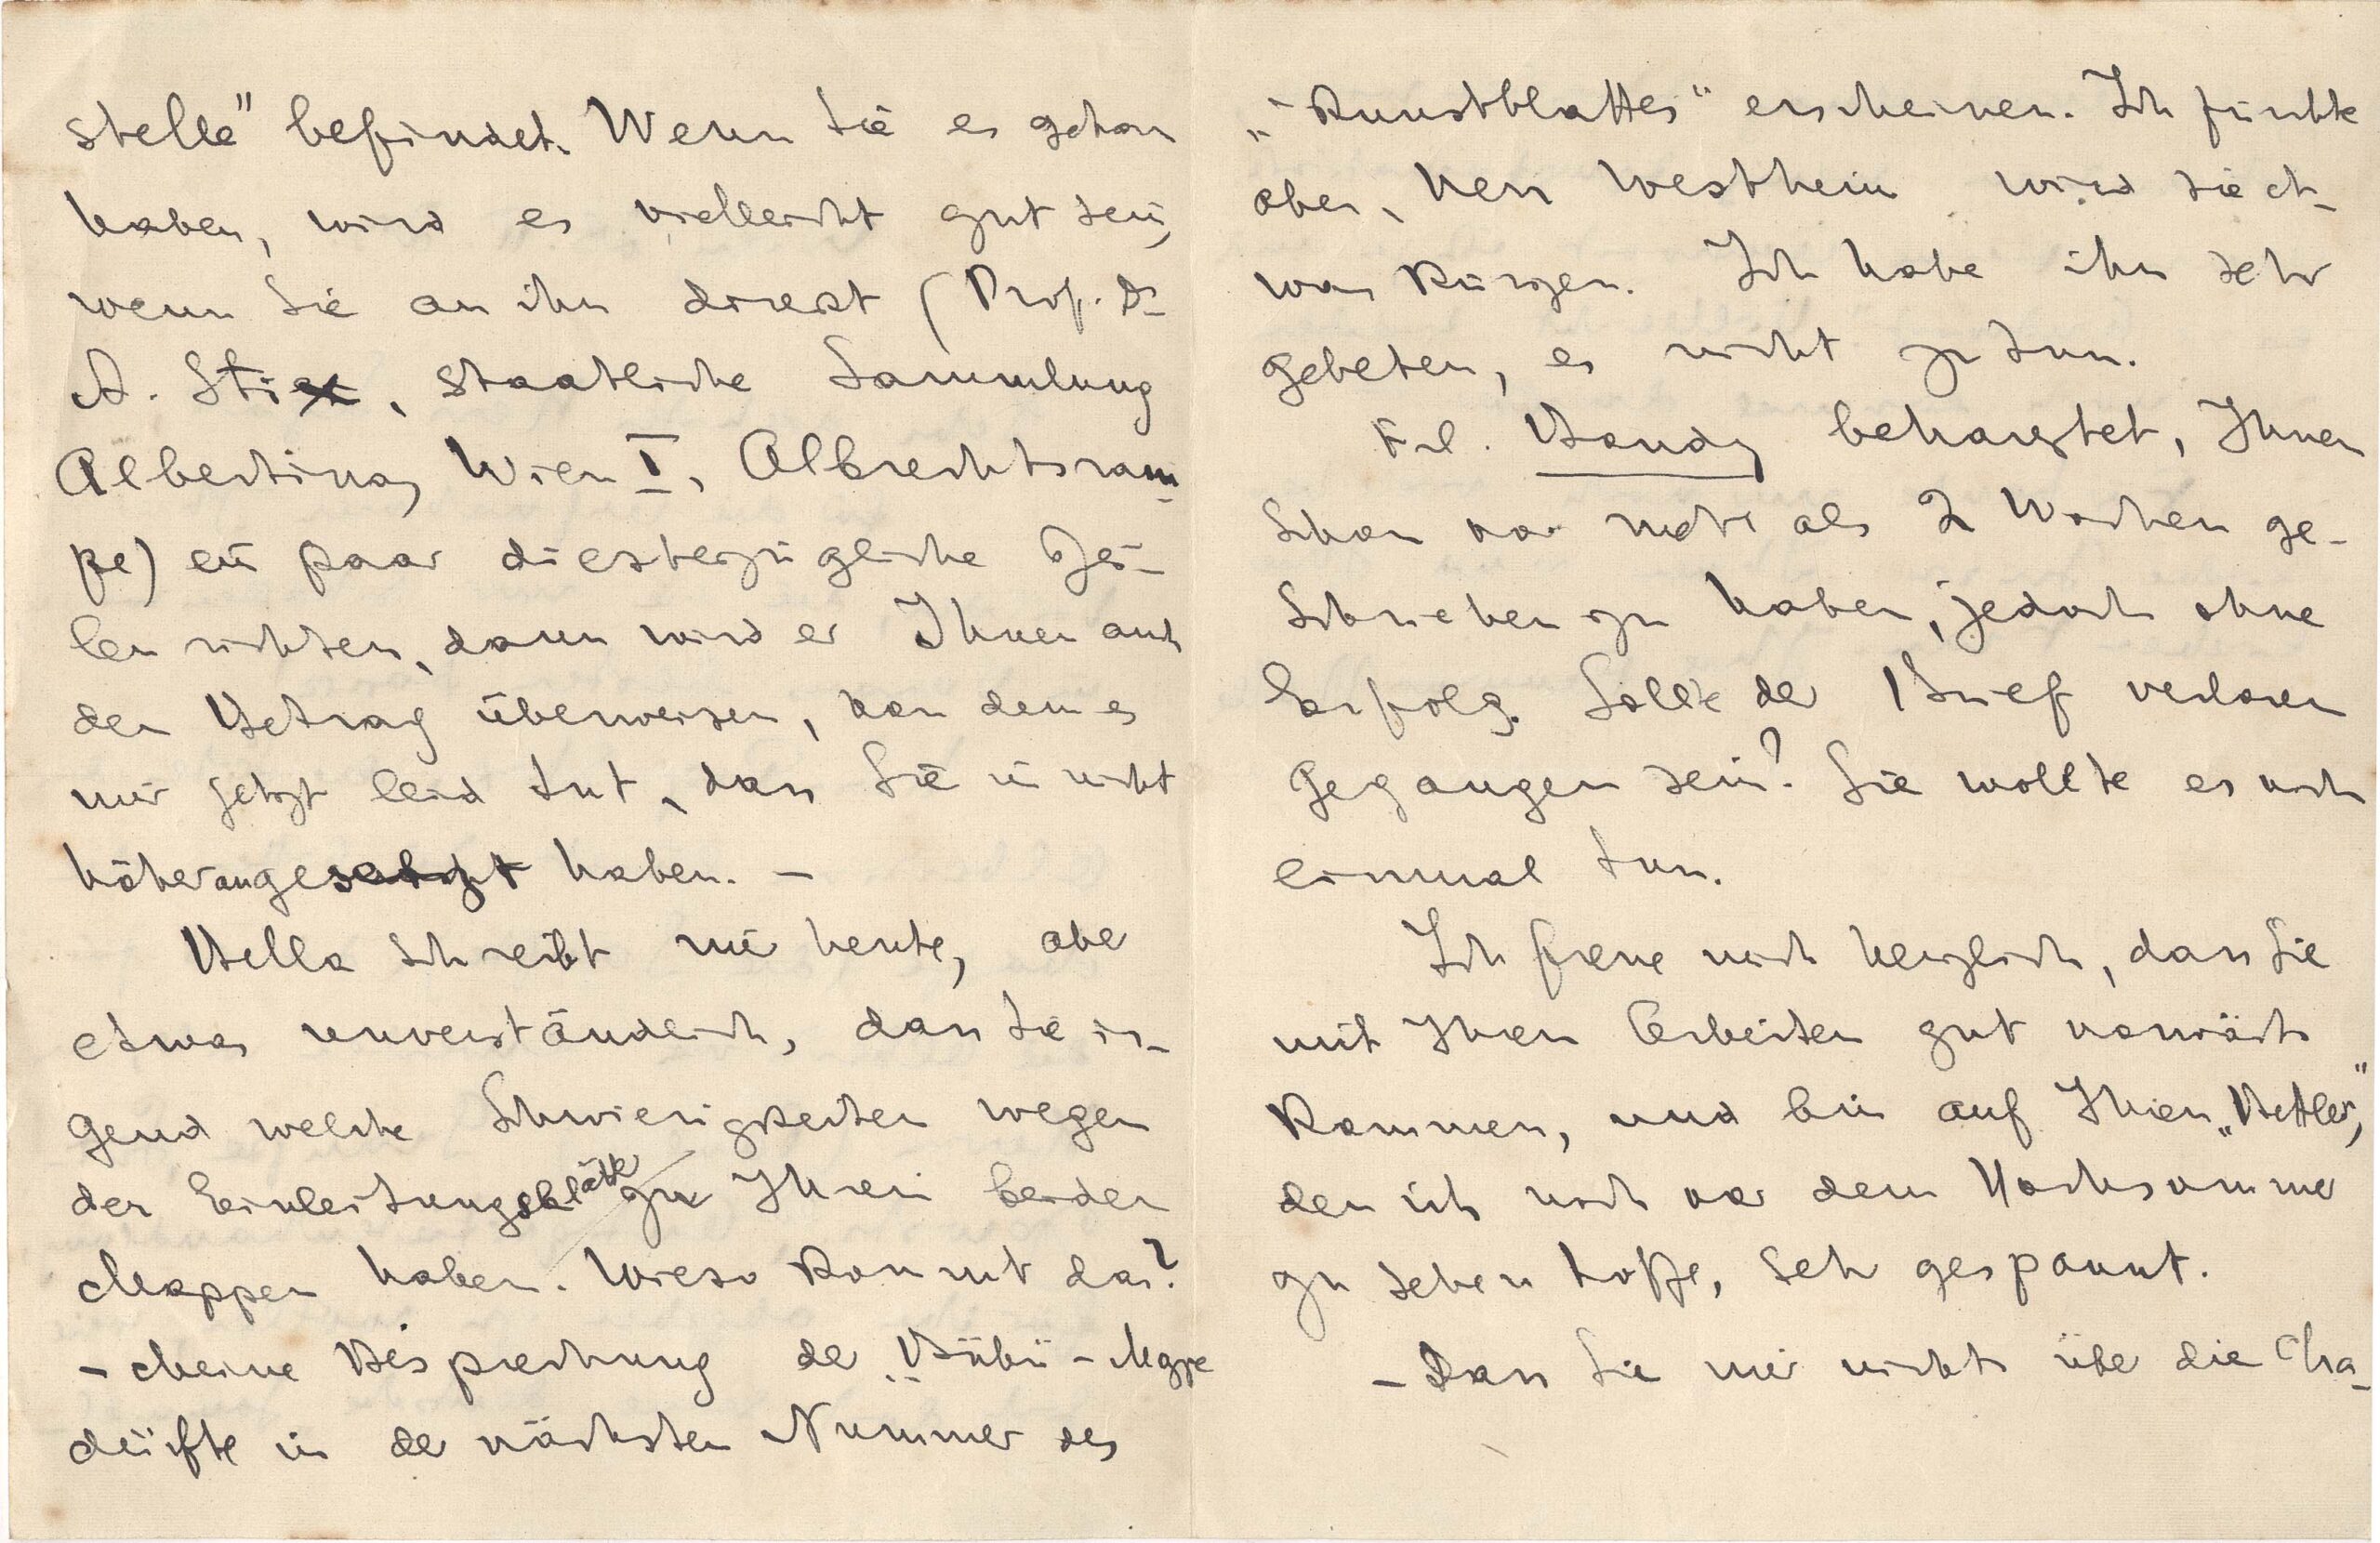 stelle" befindet. Wenn Sie es getan
haben, wird es vielleicht gut sein,
wenn Sie an ihn direkt (Prof. Dr
A. Stix, staatliche Sammlung
Albertina, Wien I, Albrechtsram
pe) ein paar diesbezügliche Zei-
len richten, dann wird er Ihnen auch
den Betrag überweisen, von dem es
mir jetzt leid tut, dass Sie ihn nicht
höher angesetzt haben. –
Bella schreibt mir heute, aber
etwas unverständlich, dass Sie ir-
gend welche Schwierigkeiten wegen
der Einleitungsblätter zu Ihren beiden
Mappen haben. Wieso kommt das?
– Meine Besprechung der „Bübü-Mappe
dürfte in der nächsten Nummer des
„Kunstblattes" erscheinen. Ich fürchte
aber, Herr Westheim wird sie et-
was kürzen. Ich habe ihn sehr
gebeten, es nicht zu tun.
Frl. Bondy behauptet, Ihnen
schon vor mehr als 2 Wochen ge-
schrieben zu haben, jedoch ohne
Erfolg. Sollte der Brief verloren
gegangen sein? Sie wollte es noch
einmal tun.
Ich freue mich herzlich, dass Sie
mit Ihren Arbeiten gut vorwärts
kommen, und bin auf Ihren „Bettler",
den ich noch vor dem Hochsommer
zu sehen hoffe, sehr gespannt.
– Dass Sie mir nichts über die Cha-